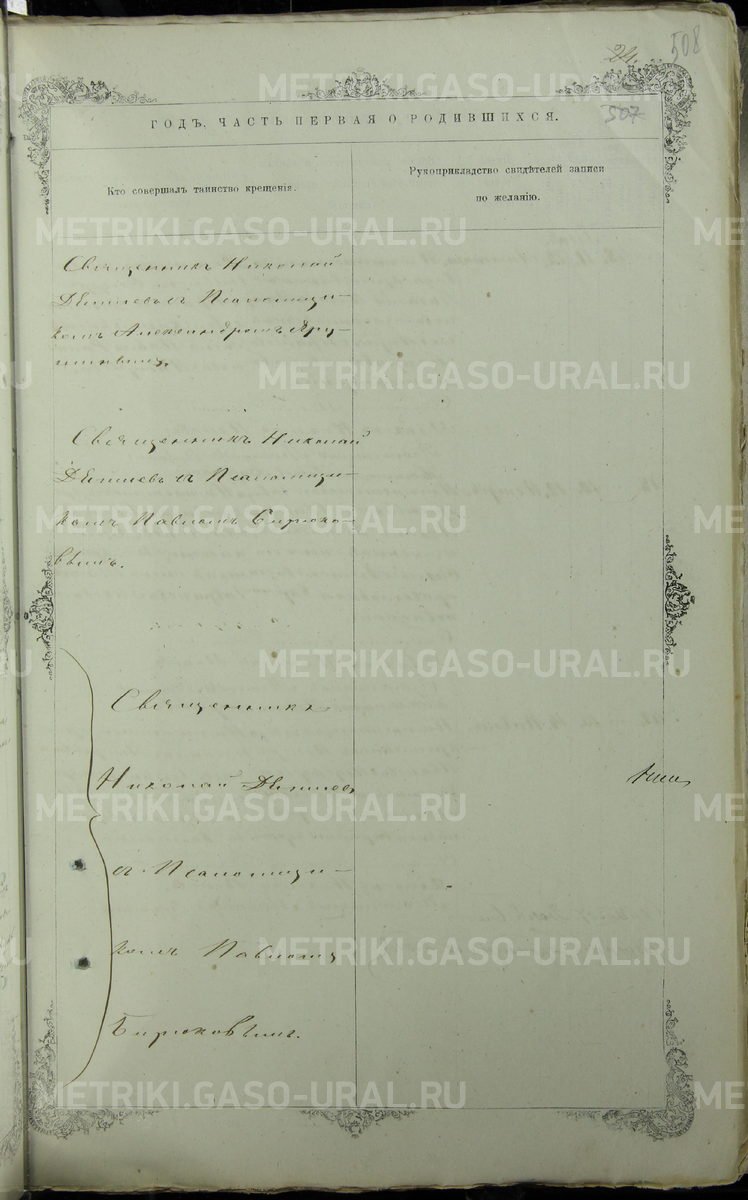 508
21.
507
ГОДЪ, ЧАСТЬ ПЕРВАЯ О РОДИВШИХСЯ.
Кто совершалъ таинство крещенія.
Рукоприкладство свидѣтелей записи
по желанію.
Священникъ Николай
съ Псаломщи-
комъ Александромъ Яру-
шинымъ.
Священникъ Николай
съ Псаломщи-
комъ Павломъ Бирюко-
вымъ.
Священникъ
Николай
съ Псаломщи-
комъ Павломъ
Бирюковымъ.
METRIKI.GASO-URAL.RU
METRIKI.GASO-URAL.RU
METRIKI.GASO-URAL.RU
METRIKI.GASO-URAL.RU
METRIKI.GASO-URAL.RU
METRIKI.GASO-URAL.RU
METRIKI.GASO-URAL.RU
METRIKI.GASO-URAL.RU